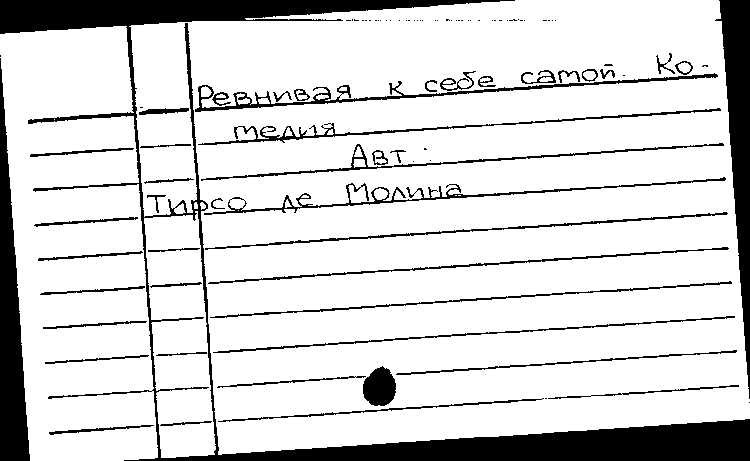 Ревнивая к себе самой. Ко-
медия.
Авт.:
Тирсо де Молина